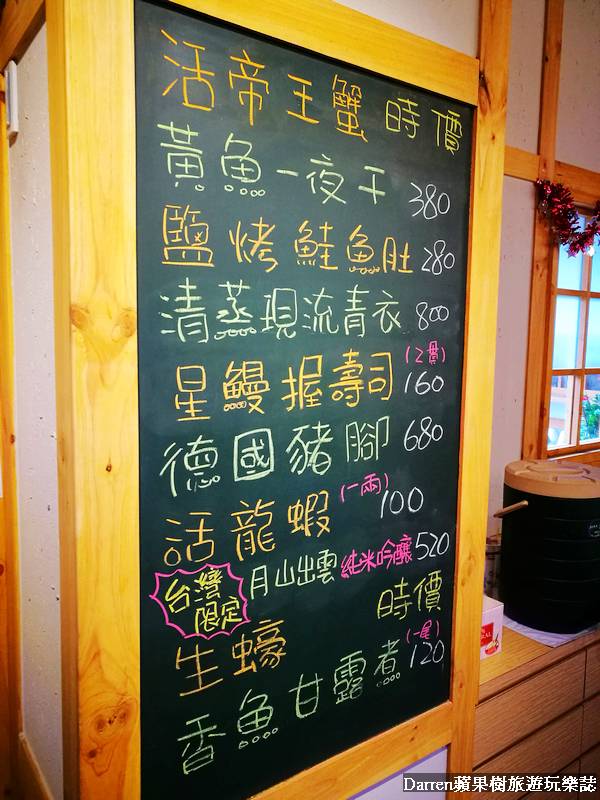 活帝王蟹 時價
黃魚一夜干 380
鹽烤鮭魚肚 280
清蒸現流青衣 800
星鰻握壽司 (2貫) 160
德國豬腳 680
活龍蝦 (一兩) 100
台灣限定 月山出雲 純米吟釀 520
生蠔 時價
香魚甘露煮 (一尾) 120
Darren蘋果樹旅遊玩樂誌